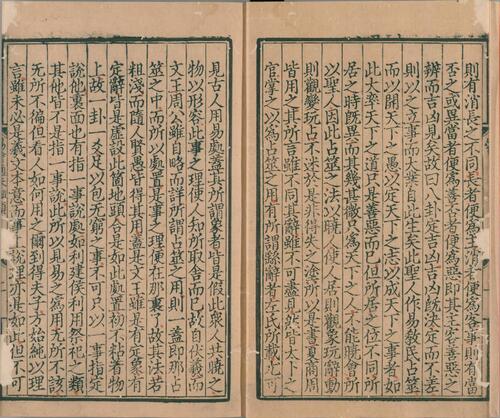 則有消長之不同長者便為主消者便為客事則有當
否之或異當者便為善否者便為惡即其主客善惡之
辨而吉凶見矣故曰八卦定吉凶吉凶既決定而不差
則以之立事而大業自此生矣此聖人作易教民占筮
而以開天下之愚以定天下之志以成天下之事者如
此大率天下之道只是善惡而已但所居之位不同所
居之時既異而其幾甚微只為天下之人不能曉會所
以聖人因此占筮之法以曉人使人居則觀象玩辭動
則觀變玩占不迷於是非得失之途所以是書夏商周
皆用之其所言雖不同其辭雖不可盡見然皆太卜之
官掌之以為占筮之用有所謂繇辭者左氏所載尤可
見古人用易處蓋其所謂象者皆是假此衆人共曉之
物以形容此事之理使人知所取舍而已故自伏羲而
文王周公雖自略而詳所謂占筮之用則一蓋即那占
筮之中而所以處置是事之理便在那裏了故其法若
粗淺而隨人賢愚皆得其用蓋文王雖是有定象有
定辭皆是虛說此箇地頭合是如此處置初不粘着物
上故一卦一爻足以包無窮之事不可只以一事指定
說他裏面也有指一事說處如利建侯利用祭祀之類
其他皆不是指一事說此所以見易之為用無所不該
無所不徧但看人如何用之爾到得夫子方始純以理
言雖未必是羲文本意而事上說理亦是如此但不可